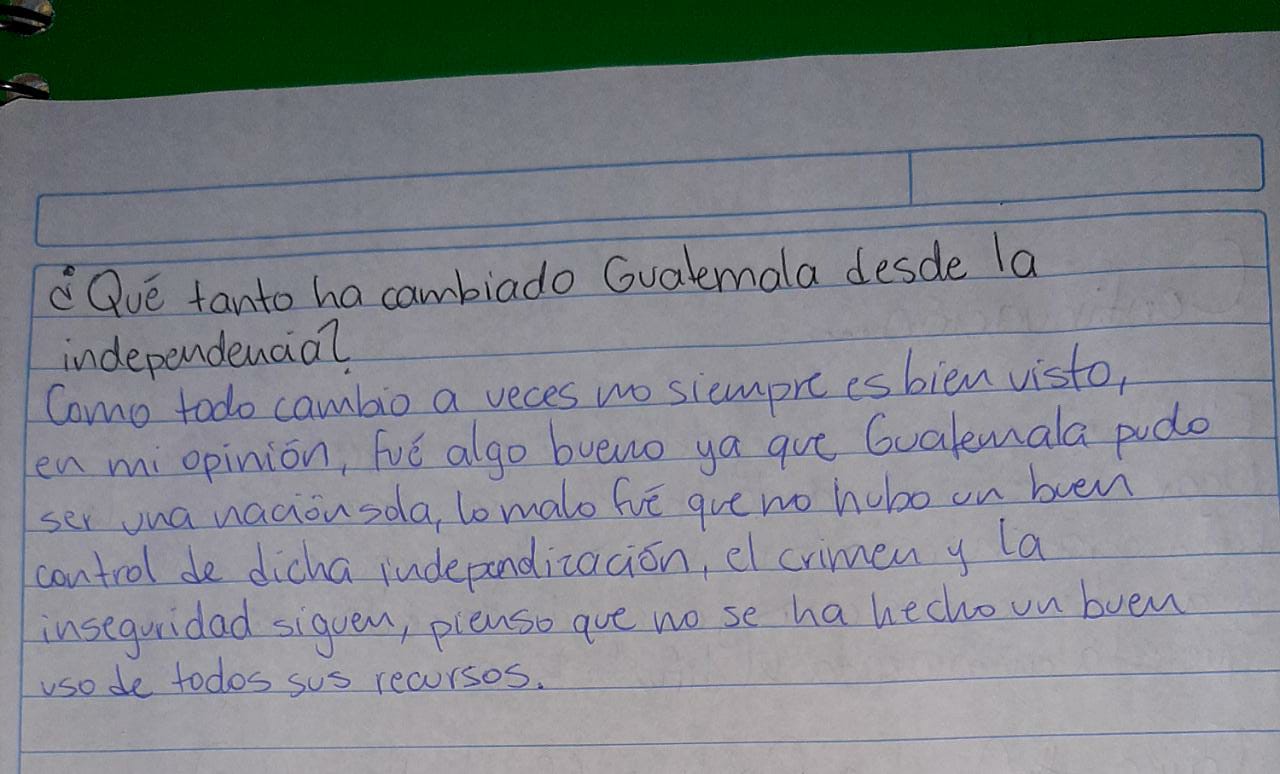 ¿Qué tanto ha cambiado Guatemala desde la
independencia?
Como todo cambio a veces no siempre es bien visto,
en mi opinión, fué algo bueno ya que Guatemala pudo
ser una nación sola, lo malo fué que no hubo un buen
control de dicha independización, el crimen y la
inseguridad siguen, pienso que no se ha hecho un buen
uso de todos sus recursos.